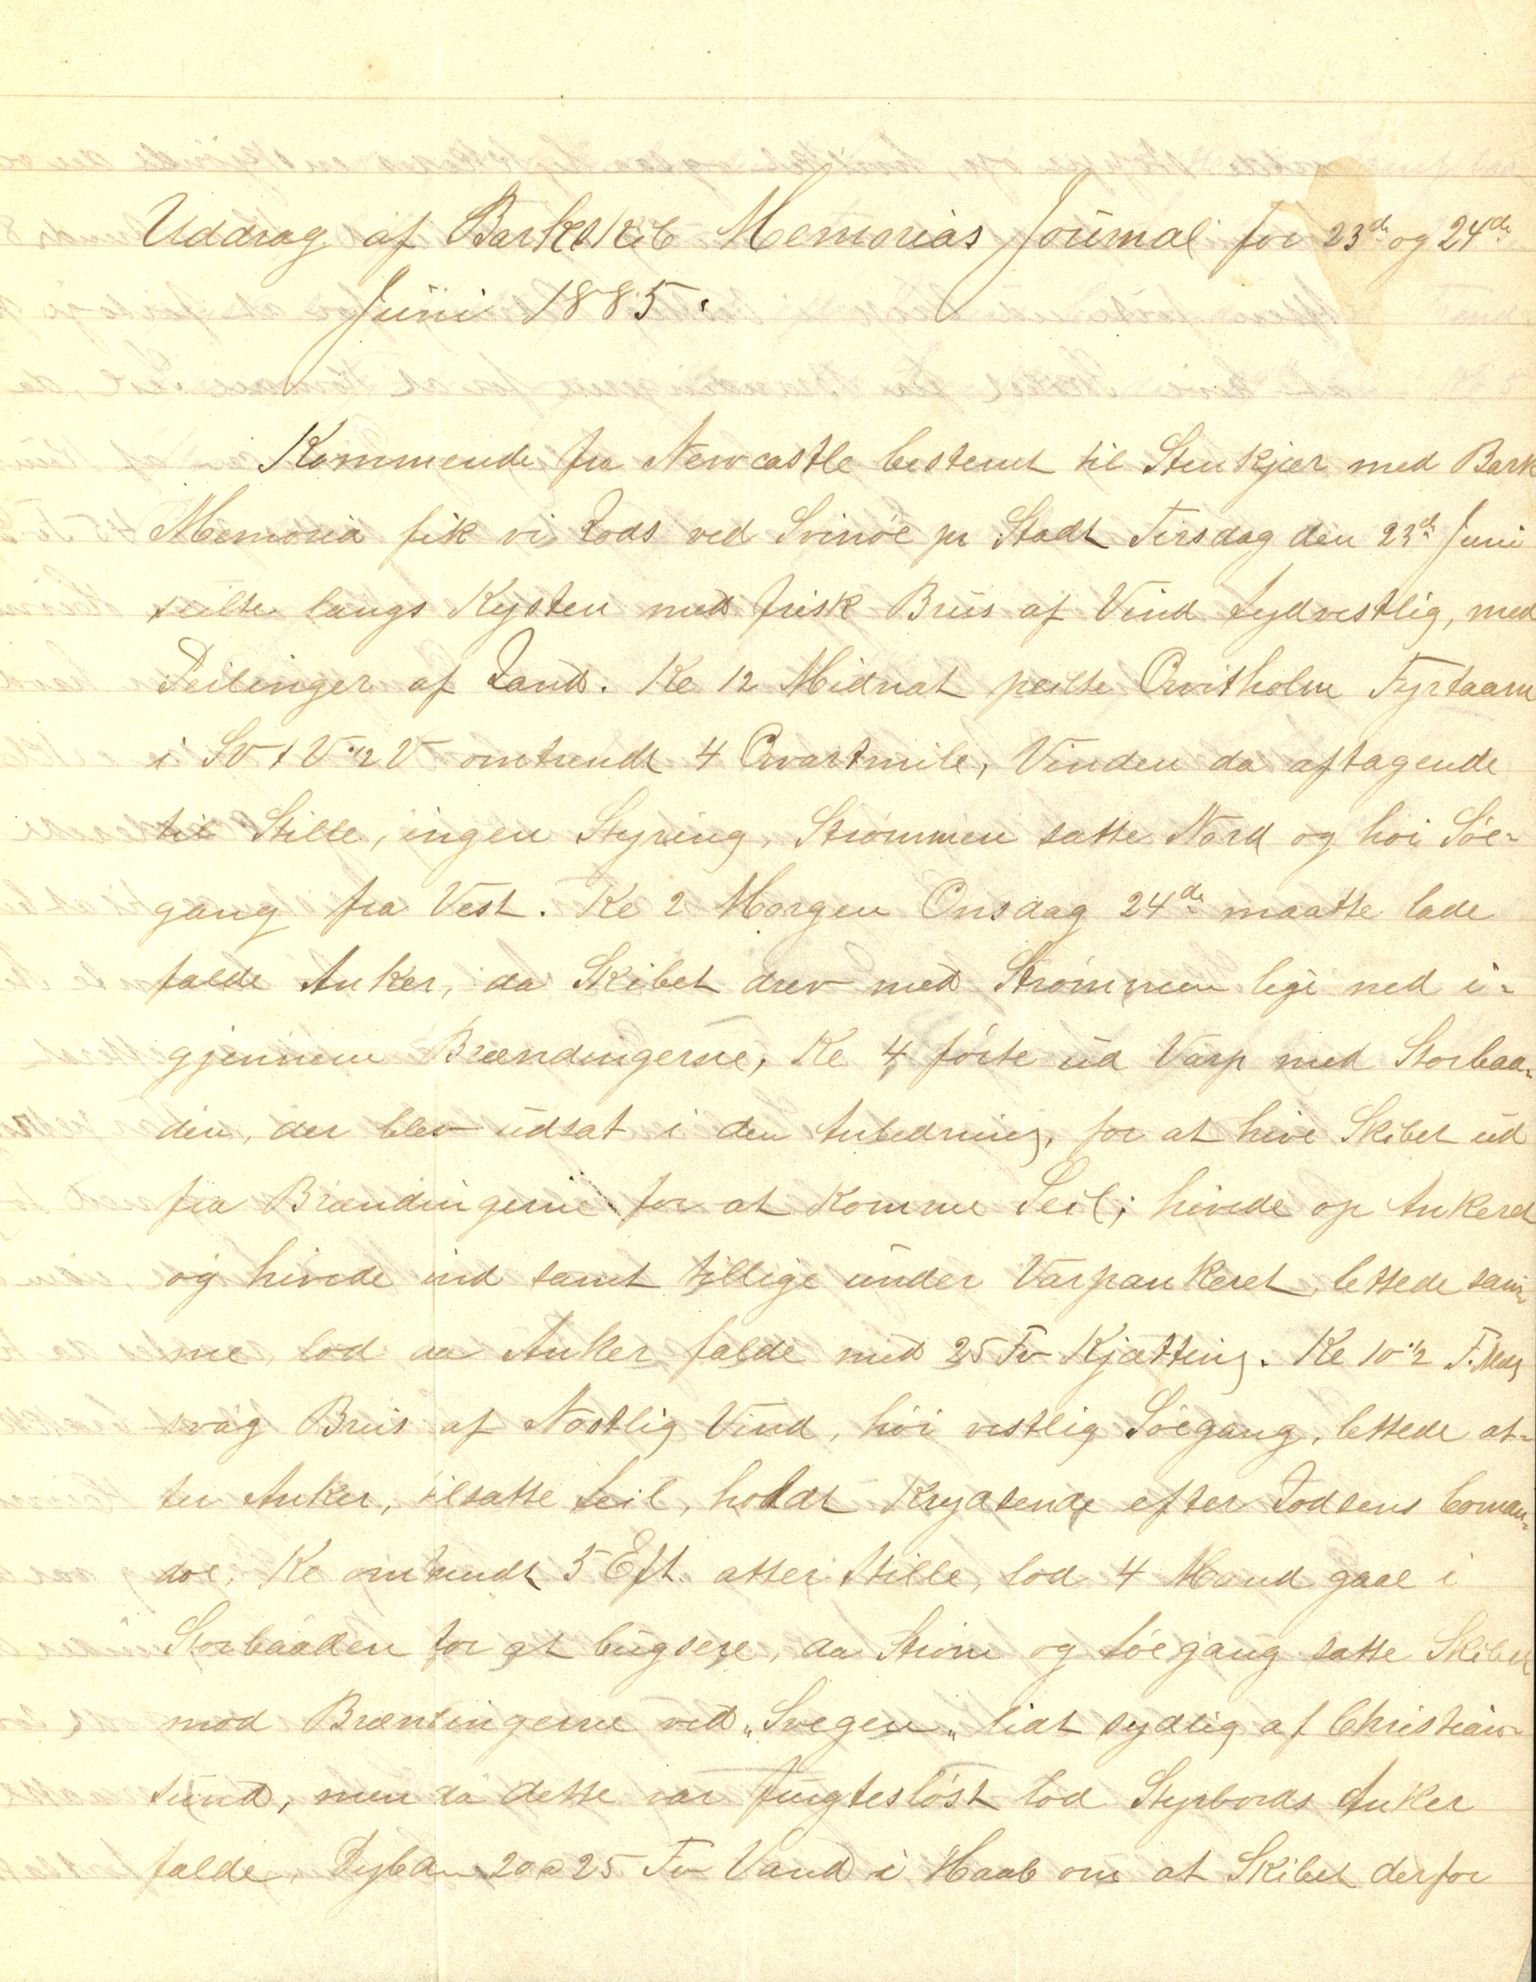 Uddrag af Barkskib Memorias Journal for 23de og 24de
Juni 1885.
Kommende fra Newcastle bestemt til Stenkjær med Bark
Memoria fik vi Lods ved Svinöe pr Stadt Tirsdag den 23de Juni
seilte langs Kysten med frisk Bris af Vind Sydvestlig, med
Peilinger af Land. Kl 12 Midnat peilte Qvitholm Fyrtaarn
i SV t V 1/2 V omtrendt 4 Qvartmile, Vinden da aftagende
til Stille, ingen Styring, Strømmen satte Nord og høi Söe-
gang fra Vest. Kl 2 Morgen Onsdag 24de maatte lade
falde Anker, da Skibet drev med Strømmen lige ned i-
gjennem Brændingerne, Kl 4 förte ud Varp med Storbaa-
den, der blev udsat i den Anledning, for at hive Skibet ud
fra Brændingerne for at komme Seil; hivede op Ankeret
og hivede ind samt tillige under Varpankeret, lettede sam-
me lod aa Anker falde med 25 Fv Kjætting. Kl 10 1/2 F. Mdg
svag Bris af Nostlig Vind, höi vestlig Söegang, lettede at-
ter Anker, tilsatte Seil, holdt Krydsende efter Lodsens Coman-
doe. Kl omtrendt 5 Eft. atter Stille, lod 4 Mand gaae i
Storbaaden for at bugsere, da Ström og Söegang satte Skibet
mod Brændingerne ved „Svegen„ lidt sydlig af Christian-
sund, men da dette var frugteslöst lod Styrbords Anker
falde, Dybde 20 a 25 Fv Vand i Haab om at Skibet derfor